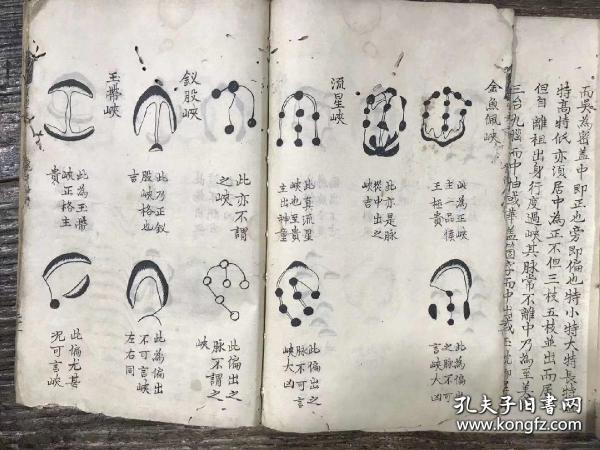 而眾為密蓋中即正也旁即偏也特小特大特長特
特高特低亦須居中為正不但三枝五枝並出而居
但自離祖出身行度過峽其脉常不離中乃為至美
三台九腦而中抽或華蓋個字而中出或
金魚佩峽
此為正峽
主一品侯
王極貴
此為偏出
之脉不可
言峽大凶
流星峽
此亦是脉
從中出之
峽吉
此真流星
峽也至貴
主出神童
此偏出之
脉不可言
峽大凶
此亦不謂
之峽
此偏出之
脉不謂之
峽
釵股峽
此乃正釵
股峽格也
言
此為偏出
不可言峽
左右同
玉帶峽
此為玉帶
峽正格主
貴
此偏尤甚
况可言峽
孔夫子旧书网
www.kongfz.com